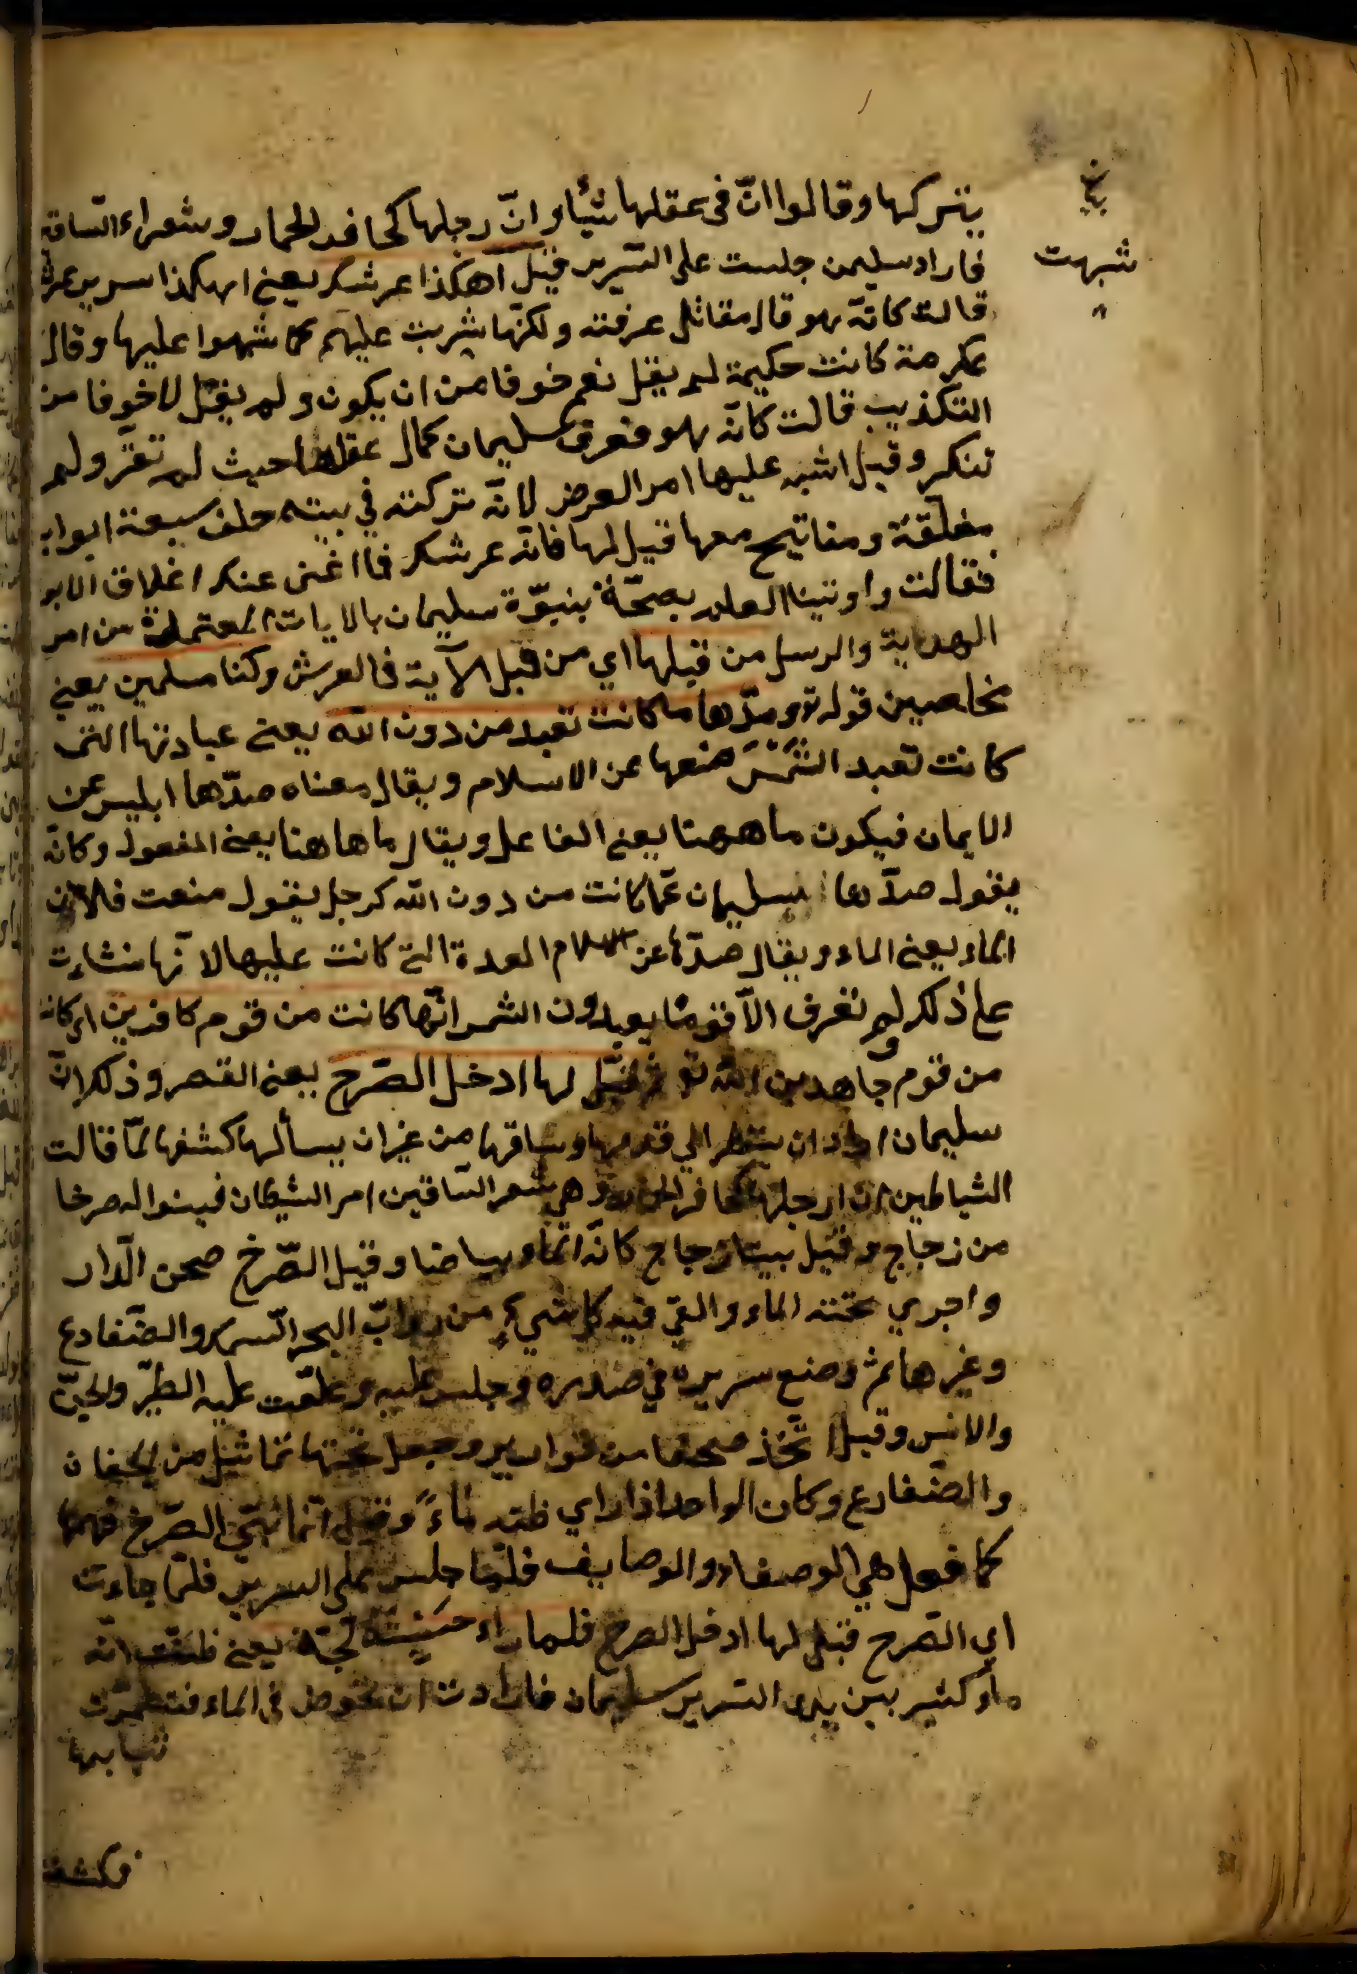 شبهت
يتركها وقالوا ان في عقلها شيأ وانّ رجلها كحافر الحمار وشعراء السّاقة
فاراد سليمن جلست على السّرير قيل أهكذا عرشك يعنى اهكذا سرير عرشك
قالت كانّه هو قال مقاتل عرفته ولكنّها شبهت عليهم كما شبهوا عليها وقال
عكرمة كانت حكيمة لم يقل نعم خوفا من ان يكون ولم يقل لا خوفا من
التكذيب قالت كانّه هو فعرف سليمان كمال عقلها حيث لم تقرّ ولم
تنكر وقيل اشبه عليها امر العرض لانّه تركته في بيته خلف سبعة ابواب
مغلّقة ومفاتيح معها قيل لها فانّه عرشك فما اغنى عنك اغلاق الابو
فقالت واوتينا العلم بصحّة بنبوّة سليمان بالايات من امر
الهداية والرسل من قبلها اي من قبل الآية في العرش وكنا مسلمين يعنى
مخلصين قوله تع وصدّها ما كانت تعبد من دون الله يعنى عبادتها التى
كانت تعبد الشمس منعها عن الاسلام ويقال معناه صدّها ابليس عن
الايمان فيكون ما ههنا يعنى الفاعل ويقال ما هاهنا يعنى المفعول وكانّه
يقول صدّها سليمان عمّا كانت من دون الله كرجل يقول منعت فلان
الماء يعنى الماء ويقال صدّها عن الاسلام العدة التى كانت عليها لانّها منشاءت
على ذلك ولم تعرف الا قوما يعبدون الشمس انّها كانت من قوم كافرين اى كانت
من قوم جاهدين لله تع قيل لها ادخل الصّرح يعنى القصر وذلك انّ
سليمان اراد ان ينظر الي قدمها وساقها من غير ان يسألها كشفها لمّا قالت
الشياطين ان رجلها كحافر الحمار وهي شعر السّاقين امر الشيطان فبنوا له صرخا
من زجاج وقيل بيتا زجاج كانّه الماء بياضا وقيل الصّرح صحن الدّار
واجري تحته الماء والقي فيه كل شيء من دوابّ البحر السمك والضّفادع
وغيرها ثم وضع سريره في صدره وجلس عليه وعلّقت عليه الطيّر والجنّ
والانس وقيل اتّخذ صحنا من قوارير وجعل تحتها تماثيل من الحيتان
والضّفادع وكان الواحد اذا راي ظنّه ماءً وقيل انّما بنى الصّرح
كما فعل هي الوصفاء والوصايف فلمّا جلس على السرير فلمّا جاءت
اي الصّرح قيل لها ادخل الصرح فلما راء حسبته لجّة يعنى ظنّت انّه
ماء كثير بين يدى السّرير سليمان فارادت ان تخوض في الماء
ثيابها
فكشفت